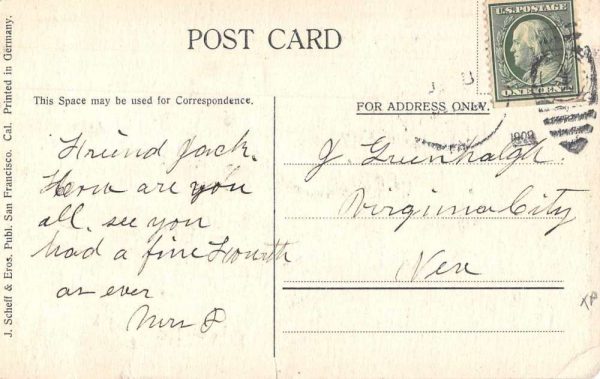 POST CARD
U.S. POSTAGE
ONE CENT
1909
This Space may be used for Correspondence.
FOR ADDRESS ONLY.
J. Scheff & Bros. Publ. San Francisco. Cal. Printed in Germany.
Friend Jack.
How are you
all. see you
had a fine Fourth
as ever
Mrs P
J. Greenhalgh
Virginia City
Nev